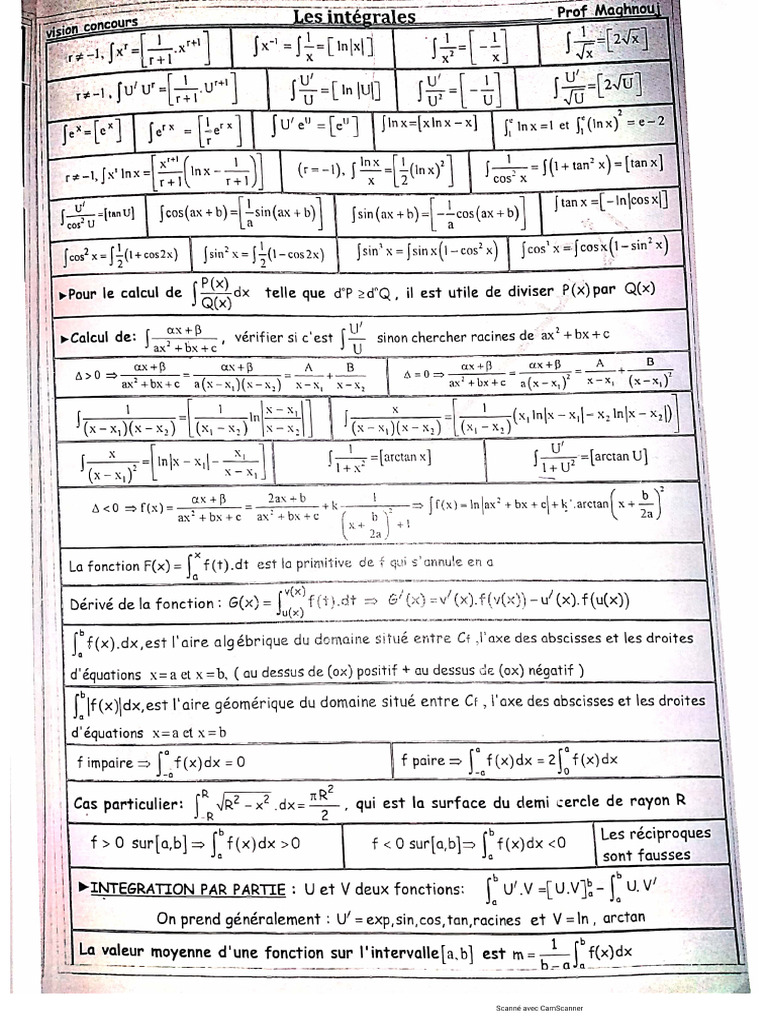 vision concours Les intégrales Prof Maghnouj
r≠-1, ∫x^r=[1/(r+1) .x^(r+1)] ∫x^(-1)=∫1/x=[ln|x|] ∫1/x²=[-1/x] ∫1/√x=[2√x]
r≠-1, ∫U' U^r=[1/(r+1) .U^(r+1)] ∫U'/U=[ln|U|] ∫U'/U²=[-1/U] ∫U'/√U=[2√U]
∫e^x=[e^x] ∫e^(rx)=[1/r e^(rx)] ∫U' e^U=[e^U] ∫ln x=[x ln x-x] ∫₁^e ln x=1 et ∫₁^e (ln x)²=e-2
r≠-1, ∫x^r ln x=[x^(r+1)/(r+1) (ln x-1/(r+1))] (r=-1), ∫ln x/x=[1/2 (ln x)²] ∫1/cos² x=∫(1+tan² x)=[tan x]
∫U'/cos² U=[tan U] ∫cos(ax+b)=[1/a sin(ax+b)] ∫sin(ax+b)=[-1/a cos(ax+b)] ∫tan x=[-ln|cos x|]
∫cos² x=∫1/2(1+cos2x) ∫sin² x=∫1/2(1-cos2x) ∫sin³ x=∫sin x(1-cos² x) ∫cos³ x=∫cos x(1-sin² x)
►Pour le calcul de ∫P(x)/Q(x) dx telle que d°P ≥d°Q , il est utile de diviser P(x) par Q(x)
►Calcul de: ∫(αx+β)/(ax²+bx+c), vérifier si c'est ∫U'/U sinon chercher racines de ax²+bx+c
Δ>0 ⇒ (αx+β)/(ax²+bx+c)=(αx+β)/(a(x-x₁)(x-x₂))=A/(x-x₁)+B/(x-x₂) Δ=0 ⇒ (αx+β)/(ax²+bx+c)=(αx+β)/(a(x-x₁)²)=A/(x-x₁)+B/(x-x₁)²
∫1/((x-x₁)(x-x₂))=[1/(x₁-x₂) ln|(x-x₁)/(x-x₂)|] ∫x/((x-x₁)(x-x₂))=[1/(x₁-x₂) (x₁ ln|x-x₁|-x₂ ln|x-x₂|)]
∫x/(x-x₁)²=[ln|x-x₁|-x₁/(x-x₁)] ∫1/(1+x²)=[arctan x] ∫U'/(1+U²)=[arctan U]
Δ<0 ⇒ f(x)=(αx+β)/(ax²+bx+c)=(2ax+b)/(ax²+bx+c)+k 1/((x+b/2a)²+1) ⇒ ∫f(x)=ln|ax²+bx+c|+k'.arctan(x+b/2a)²
La fonction F(x)=∫ₐ^x f(t).dt est la primitive de f qui s'annule en a
Dérivé de la fonction : G(x)=∫_{u(x)}^{v(x)} f(t).dt ⇒ G'(x)=v'(x).f(v(x))-u'(x).f(u(x))
∫ₐ^b f(x).dx,est l'aire algébrique du domaine situé entre Cf ,l'axe des abscisses et les droites
d'équations x=a et x=b, ( au dessus de (ox) positif + au dessus de (ox) négatif )
∫ₐ^b |f(x)|dx,est l'aire géomérique du domaine situé entre Cf , l'axe des abscisses et les droites
d'équations x=a et x=b
f impaire ⇒ ∫₋ₐ^a f(x)dx = 0 f paire ⇒ ∫₋ₐ^a f(x)dx = 2∫₀^a f(x)dx
Cas particulier: ∫_{-R}^R √(R²-x²) .dx=πR²/2 , qui est la surface du demi cercle de rayon R
f > 0 sur[a,b]⇒∫ₐ^b f(x)dx >0 f < 0 sur[a,b]⇒∫ₐ^b f(x)dx <0 Les réciproques
sont fausses
►INTEGRATION PAR PARTIE : U et V deux fonctions: ∫ₐ^b U'.V =[U.V]ₐ^b-∫ₐ^b U.V'
On prend généralement : U'=exp,sin,cos,tan,racines et V=ln , arctan
La valeur moyenne d'une fonction sur l'intervalle[a,b] est m=1/(b-a)∫ₐ^b f(x)dx
Scanné avec CamScanner